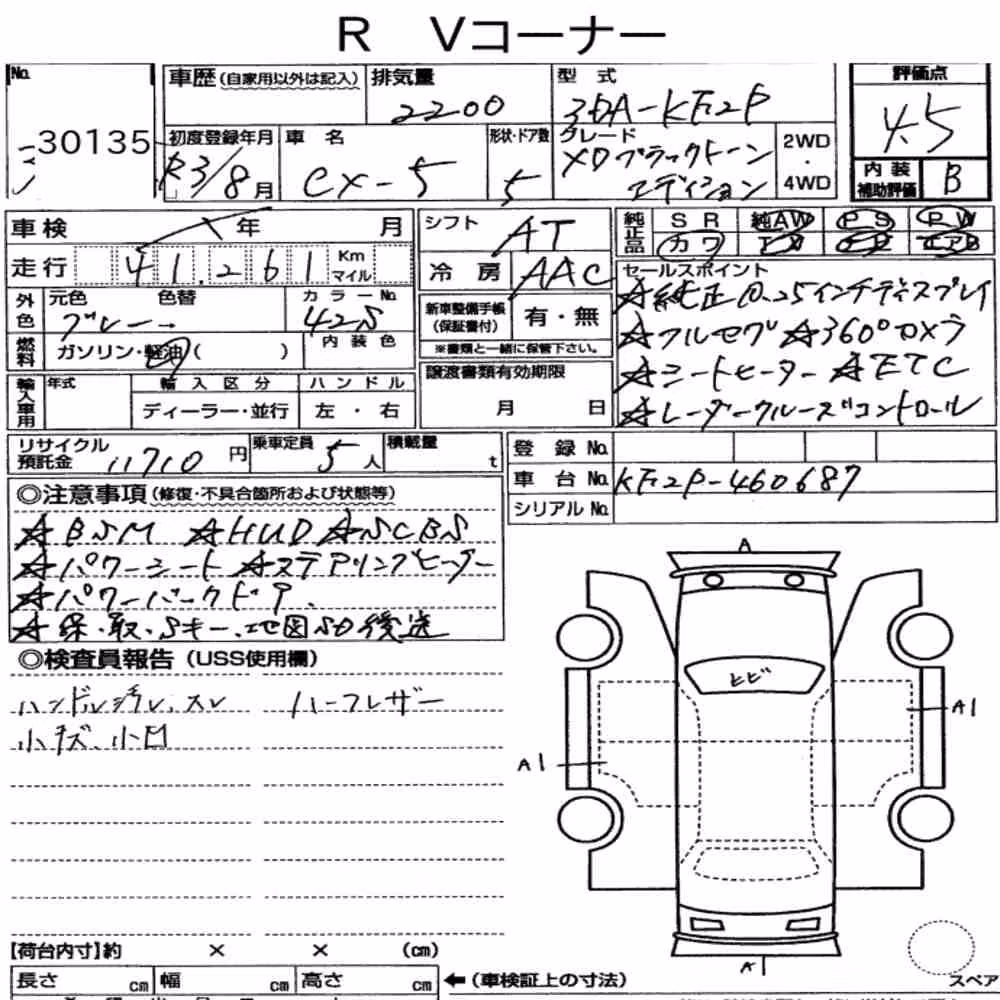 R Vコーナー
No.
30135
車歴(自家用以外は記入)
排気量
2200
型 式
3DA-KF2P
評価点
4.5
初度登録年月
R3/8月
車 名
CX-5
形状・ドア数
5
グレード
XDブラックトーン
エディション
2WD
・
4WD
内装
補助評価
B
車検
年 月
走行
41,261
Km
マイル
シフト
AT
冷房
AAC
純正品
SR 純AW PS PW
カワ エアB
外色
元色 色替
グレー
カラーNo.
42S
新車整備手帳
(保証書付)
有・無
※書類と一緒に保管下さい。
セールスポイント
☆純正10.25インチディスプレイ
☆フルセグ ☆360°カメラ
☆シートヒーター ☆ETC
☆レーダークルーズコントロール
燃料
ガソリン・軽油( )
内装色
譲渡書類有効期限
月 日
輸入車用
年式
輸入区分
ディーラー・並行
ハンドル
左・右
リサイクル
預託金
11710円
乗車定員
5人
積載量
t
登録No.
車台No.
KF2P-460687
シリアルNo.
◎注意事項(修復・不具合箇所および状態等)
☆BSM ☆HUD ☆SCBS
☆パワーシート ☆ステアリングヒーター
☆パワーバックドア.
☆保・取・Sキー・地図SD後送
◎検査員報告(USS使用欄)
ハンドル汚レ、スレ ハーフレザー
小キズ、小凹
A
ヒビ
A1
A1
A1
【荷台内寸】約 × × (cm)
長さ cm 幅 cm 高さ cm
←(車検証上の寸法)
スペア